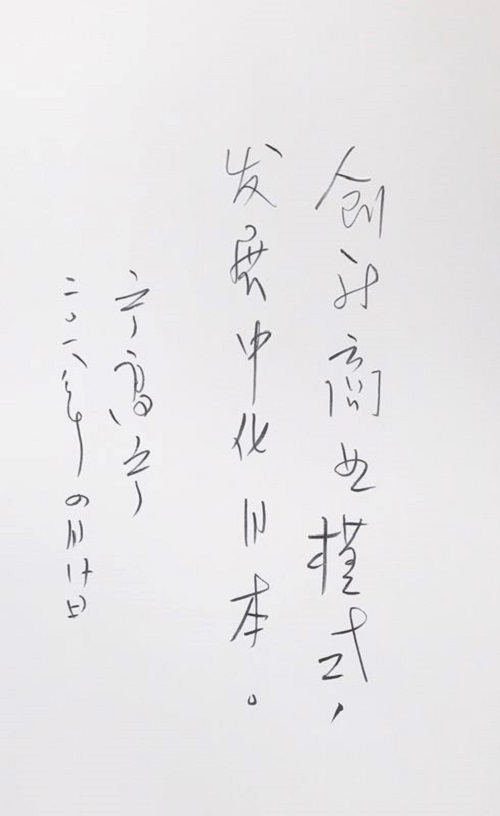 创新商业模式,
发展中化日本。
宁高宁
二〇一八年四月廿日